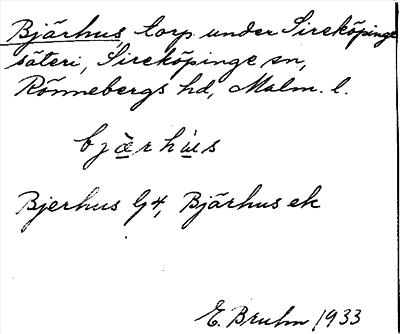 Bjärhus, torp under Sireköpinge
säteri, Sireköpinge sn,
Rönnebergs hd, Malm. l.
bjæ̀rhùs
Bjerhus G4, Bjärhus ek
E. Bruhn 1933